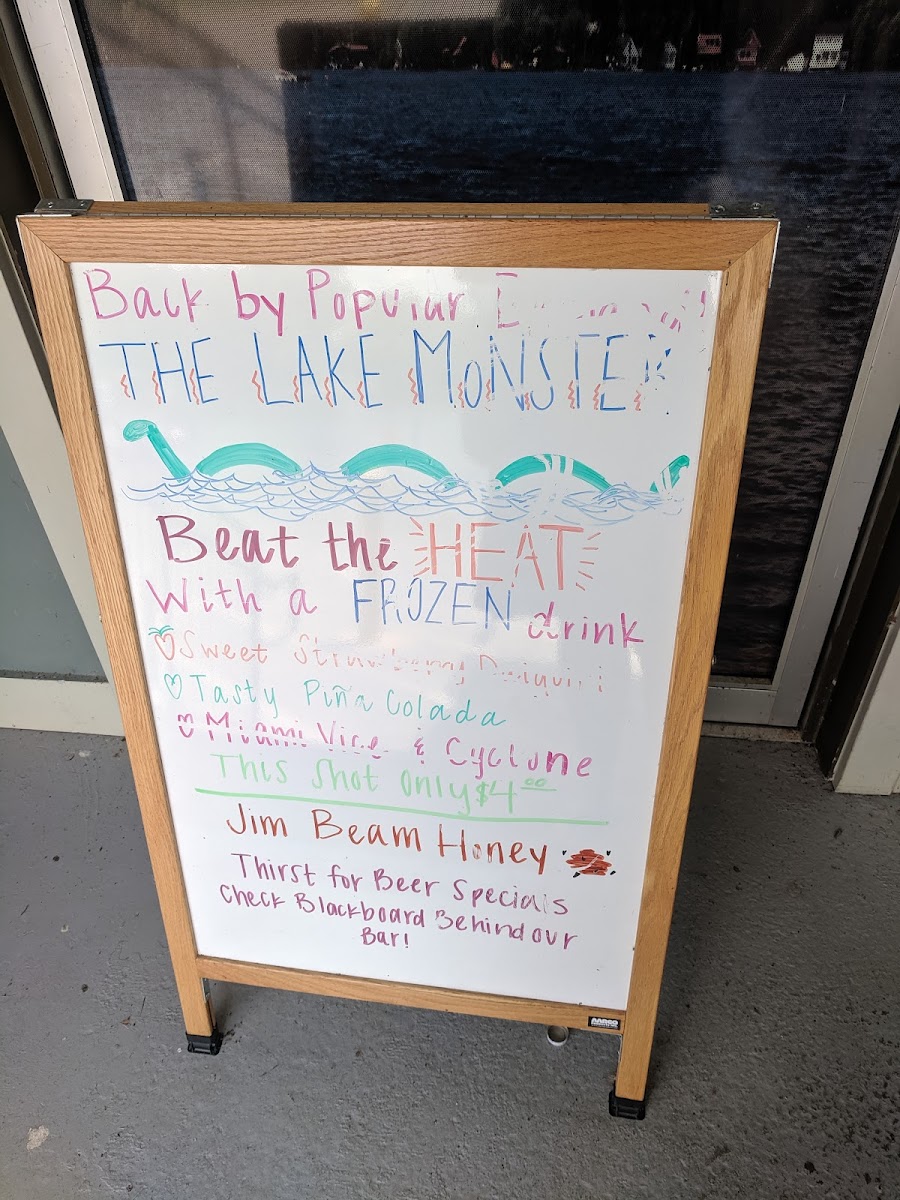 Back by Popular
THE LAKE MONSTER
Beat the HEAT
With a FROZEN drink
Sweet Strawberry Daiquiri
Tasty Piña Colada
Miami Vice & Cyclone
This Shot only $4.00
Jim Beam Honey
Thirst for Beer Specials
Check Blackboard Behind our
Bar!
AARCO